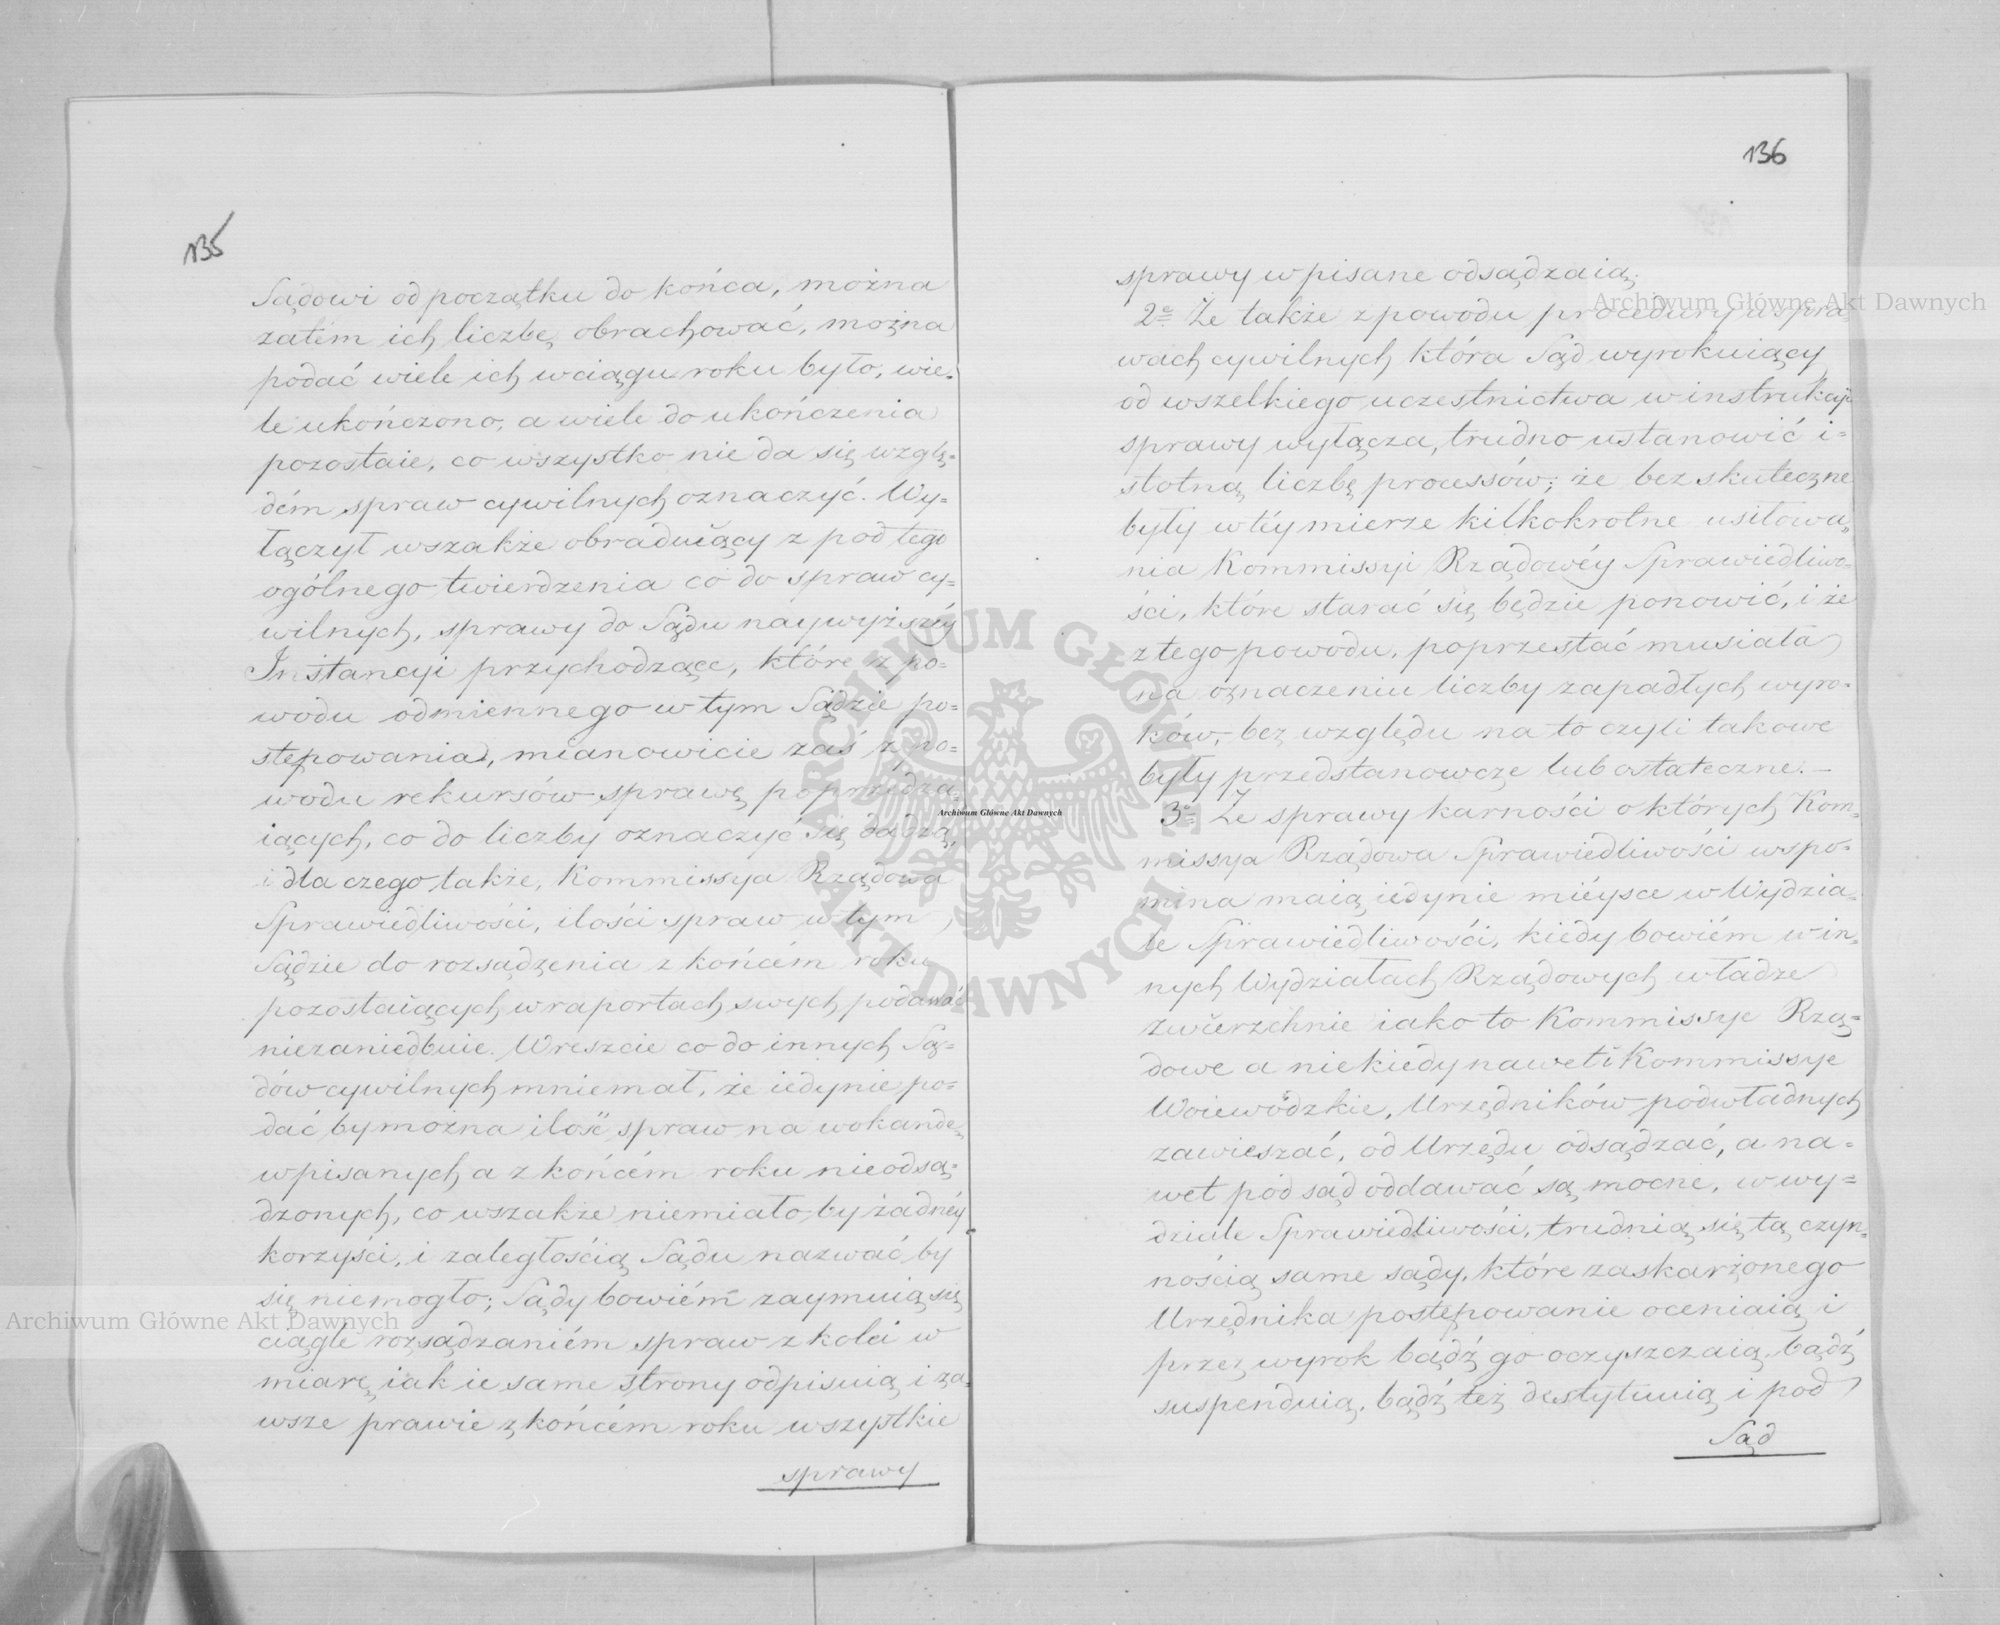 135
Sądowi od początku do końca, można
zatém ich liczbę obrachować, można
podać wiele ich w ciągu roku było, wie-
le ukończono, a wiele do ukończenia
pozostaie, co wszystko nie da się wzglę-
dém spraw cywilnych oznaczyć. Wy-
łączył wszakże obraduiący z pod tego
ogólnego twierdzenia co do spraw cy-
wilnych, sprawy do Sądu naywyższéy
Instancyi przychodzące, które z po-
wodu odmiennego w tym Sądzie po-
stępowania, mianowicie zaś z po-
wodu rekursów sprawę poprzedza-
iących, co do liczby oznaczyć się dadzą,
i dla czego także, Kommissya Rządowa
Sprawiedliwości, ilości spraw w tym
Sądzie do rozsądzenia z końcém roku
pozostaiących w raportach swych podawać
niezaniedbuie. Wreszcie co do innych Są-
dów cywilnych mniemał, że iedynie po-
dać by można ilość spraw na wokandę
wpisanych a z końcém roku nieodsą-
dzonych, co wszakże niemiało by żadnéy
korzyści, i zaległością Sądu nazwać by
się niemogło; Sądy bowiém zaymuią się
ciągle rozsądzaniém spraw z kolei w
miarę iak ie same strony odpisuią i za-
wsze prawie z końcém roku wszystkie
sprawy
136
sprawy wpisane odsądzaią;
2e Że także z powodu procedury w spra-
wach cywilnych która Sąd wyrokuiący
od wszelkiego uczestnictwa w instrukcyi
sprawy wyłącza, trudno ustanowić i-
stotną liczbę processów; że bez skuteczne
były w téy mierze kilkokrotne usiłowa-
nia Kommissyi Rządowéy Sprawiedliwo-
ści, które starać się będzie ponowić, i że
z tego powodu, poprzestać musiała
na oznaczeniu liczby zapadłych wyro-
ków, bez względu na to czyli takowe
były przedstanowcze lub ostateczne. –
3e Że sprawy karności o których Kom-
missya Rządowa Sprawiedliwości wspo-
mina maią iedynie miéysce w Wydzia-
le Sprawiedliwości, kiédy bowiém w in-
nych Wydziałach Rządowych władze
zwierzchnie iako to Kommissye Rzą-
dowe a niekiédy nawet i Kommissye
Woiewódzkie, Urzędników podwładnych
zawieszać, od Urzędu odsądzać, a na-
wet pod sąd oddawać są mocne, w wy-
dziale Sprawiedliwości, trudnią się tą czyn-
nością same sądy, które zaskarżonego
Urzędnika postępowanie oceniaią i
przez wyrok bądź go oczyszczaią, bądź
suspenduią, bądź też destytuuią i pod
Sąd
Archiwum Główne Akt Dawnych
Archiwum Główne Akt Dawnych
Archiwum Główne Akt Dawnych
ARCHIWUM GŁÓWNE AKT DAWNYCH